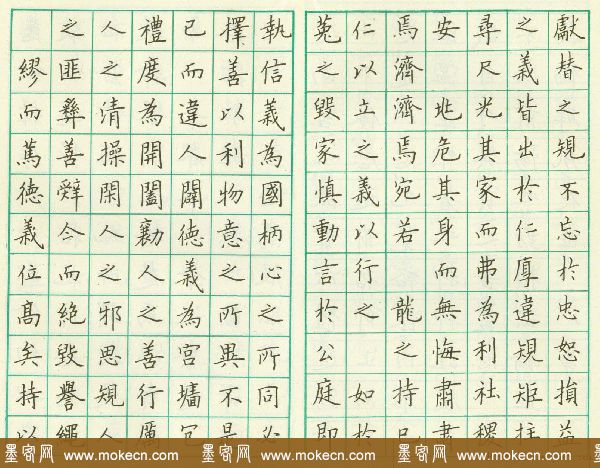 獻替之規不忘於忠恕損益
之義皆出於仁厚違規矩
尋尺光其家而弗為利社稷
安危其身而無悔肅肅
焉濟濟焉宛若龍之持
仁以立之義以行之如於
菟之毀家慎動言於公庭即
執信義為國柄心之所同必
擇善以利物意之所異不是
已而違人闢德義為宮墻
禮度為開闔勷人之善行厲
人之清操閑人之邪思規人
之匪彝善辭今而絕毀譽繩
繆而篤德義位高矣持以
墨客网 www.mokecn.com 墨客网 www.mokecn.com 墨客网 www.mokecn.com